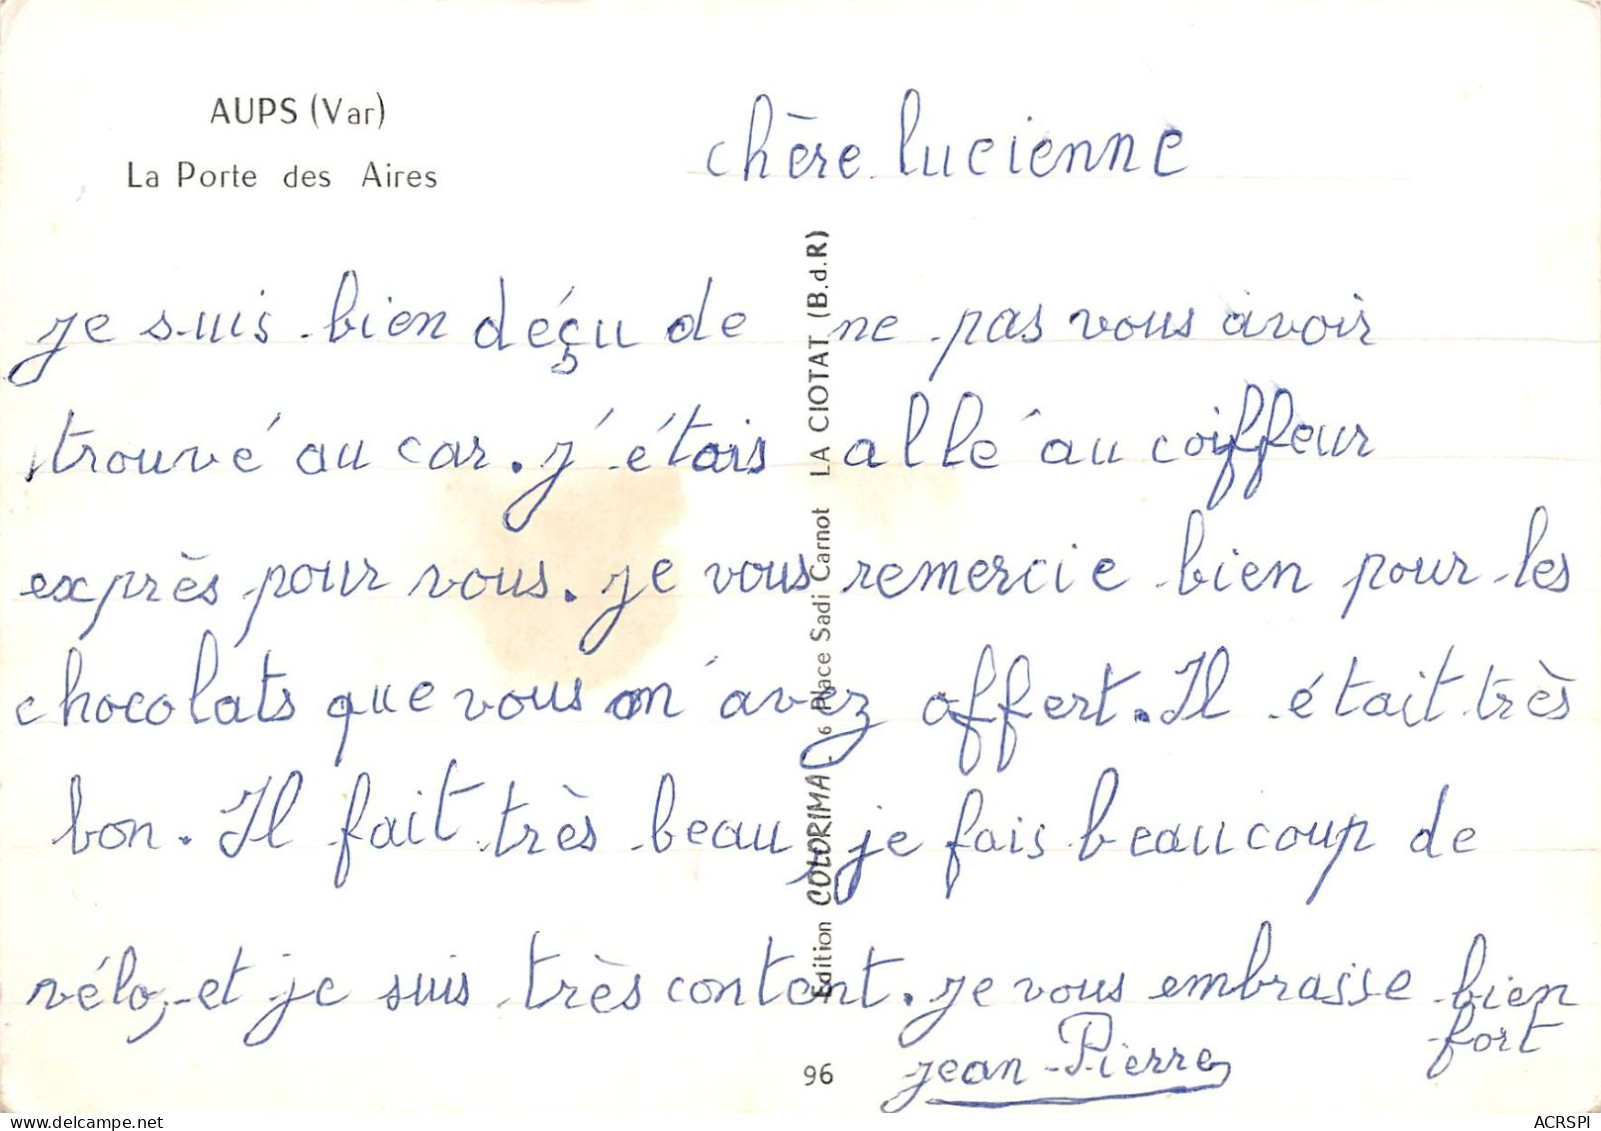 AUPS (Var)
La Porte des Aires
chère lucienne
je suis bien déçu de ne pas vous avoir
trouvé au car. j'étais allé au coiffeur
exprès pour vous. je vous remercie bien pour les
chocolats que vous m'avez offert. Il était très
bon. Il fait très beau, je fais beaucoup de
vélo, et je suis très content. je vous embrasse bien
fort
jean-Pierre
Edition COLORIMA - 6 Place Sadi Carnot LA CIOTAT (B.d.R)
96
delcampe.net
ACRSPI